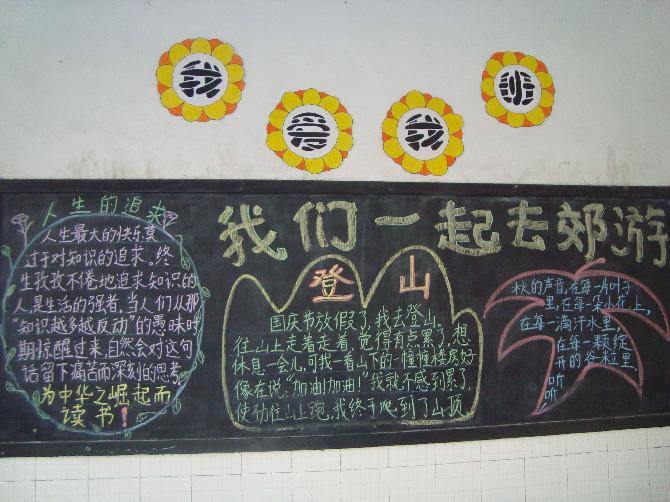 我 爱 我 班
人生的追求
人生最大的快乐莫
过于对知识的追求。终
生孜孜不倦地追求知识的
人,是生活的强者,当人们从那
“知识越多越反动”的愚昧时
期惊醒过来,自然会对这句
话留下痛苦而深刻的思考
为中华之崛起而
读书!
我们一起去郊游
登山
国庆节放假了,我去登山。
往山上走着走着,觉得有点累了,想
休息一会儿,可我一看山下的一幢幢楼房好
像在说:“加油!加油!”我就不感到累了。
使劲往山上跑,我终于爬到了山顶。
秋的声音,在每一片叶子
里,在每一朵小花上,
在每一滴汗水里,
在每一颗绽
开的谷粒里.
听
听